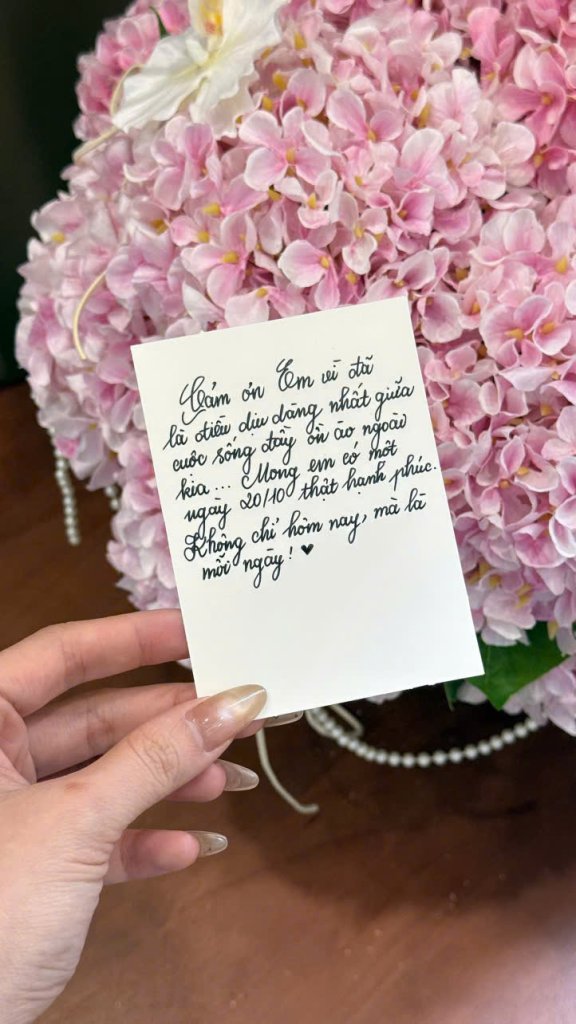 Cảm ơn Em vì đã
là điều dịu dàng nhất giữa
cuộc sống đầy ồn ào ngoài
kia... Mong em có một
ngày 20/10 thật hạnh phúc.
Không chỉ hôm nay, mà là
mỗi ngày! ♥